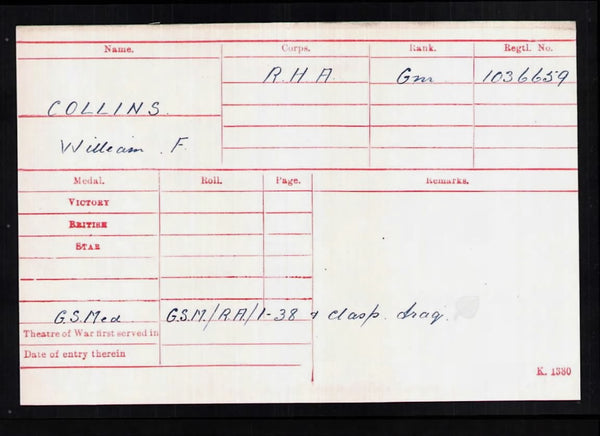 Name. Corps. Rank. Regtl. No.
R.H.A. Gnr. 1036659
COLLINS.
William. F.
Medal. Roll. Page. Remarks.
VICTORY
BRITISH
STAR
G.S.Med G.S.M./R.A./1-38 & clasp. Iraq.
Theatre of War first served in
Date of entry therein
K. 1380